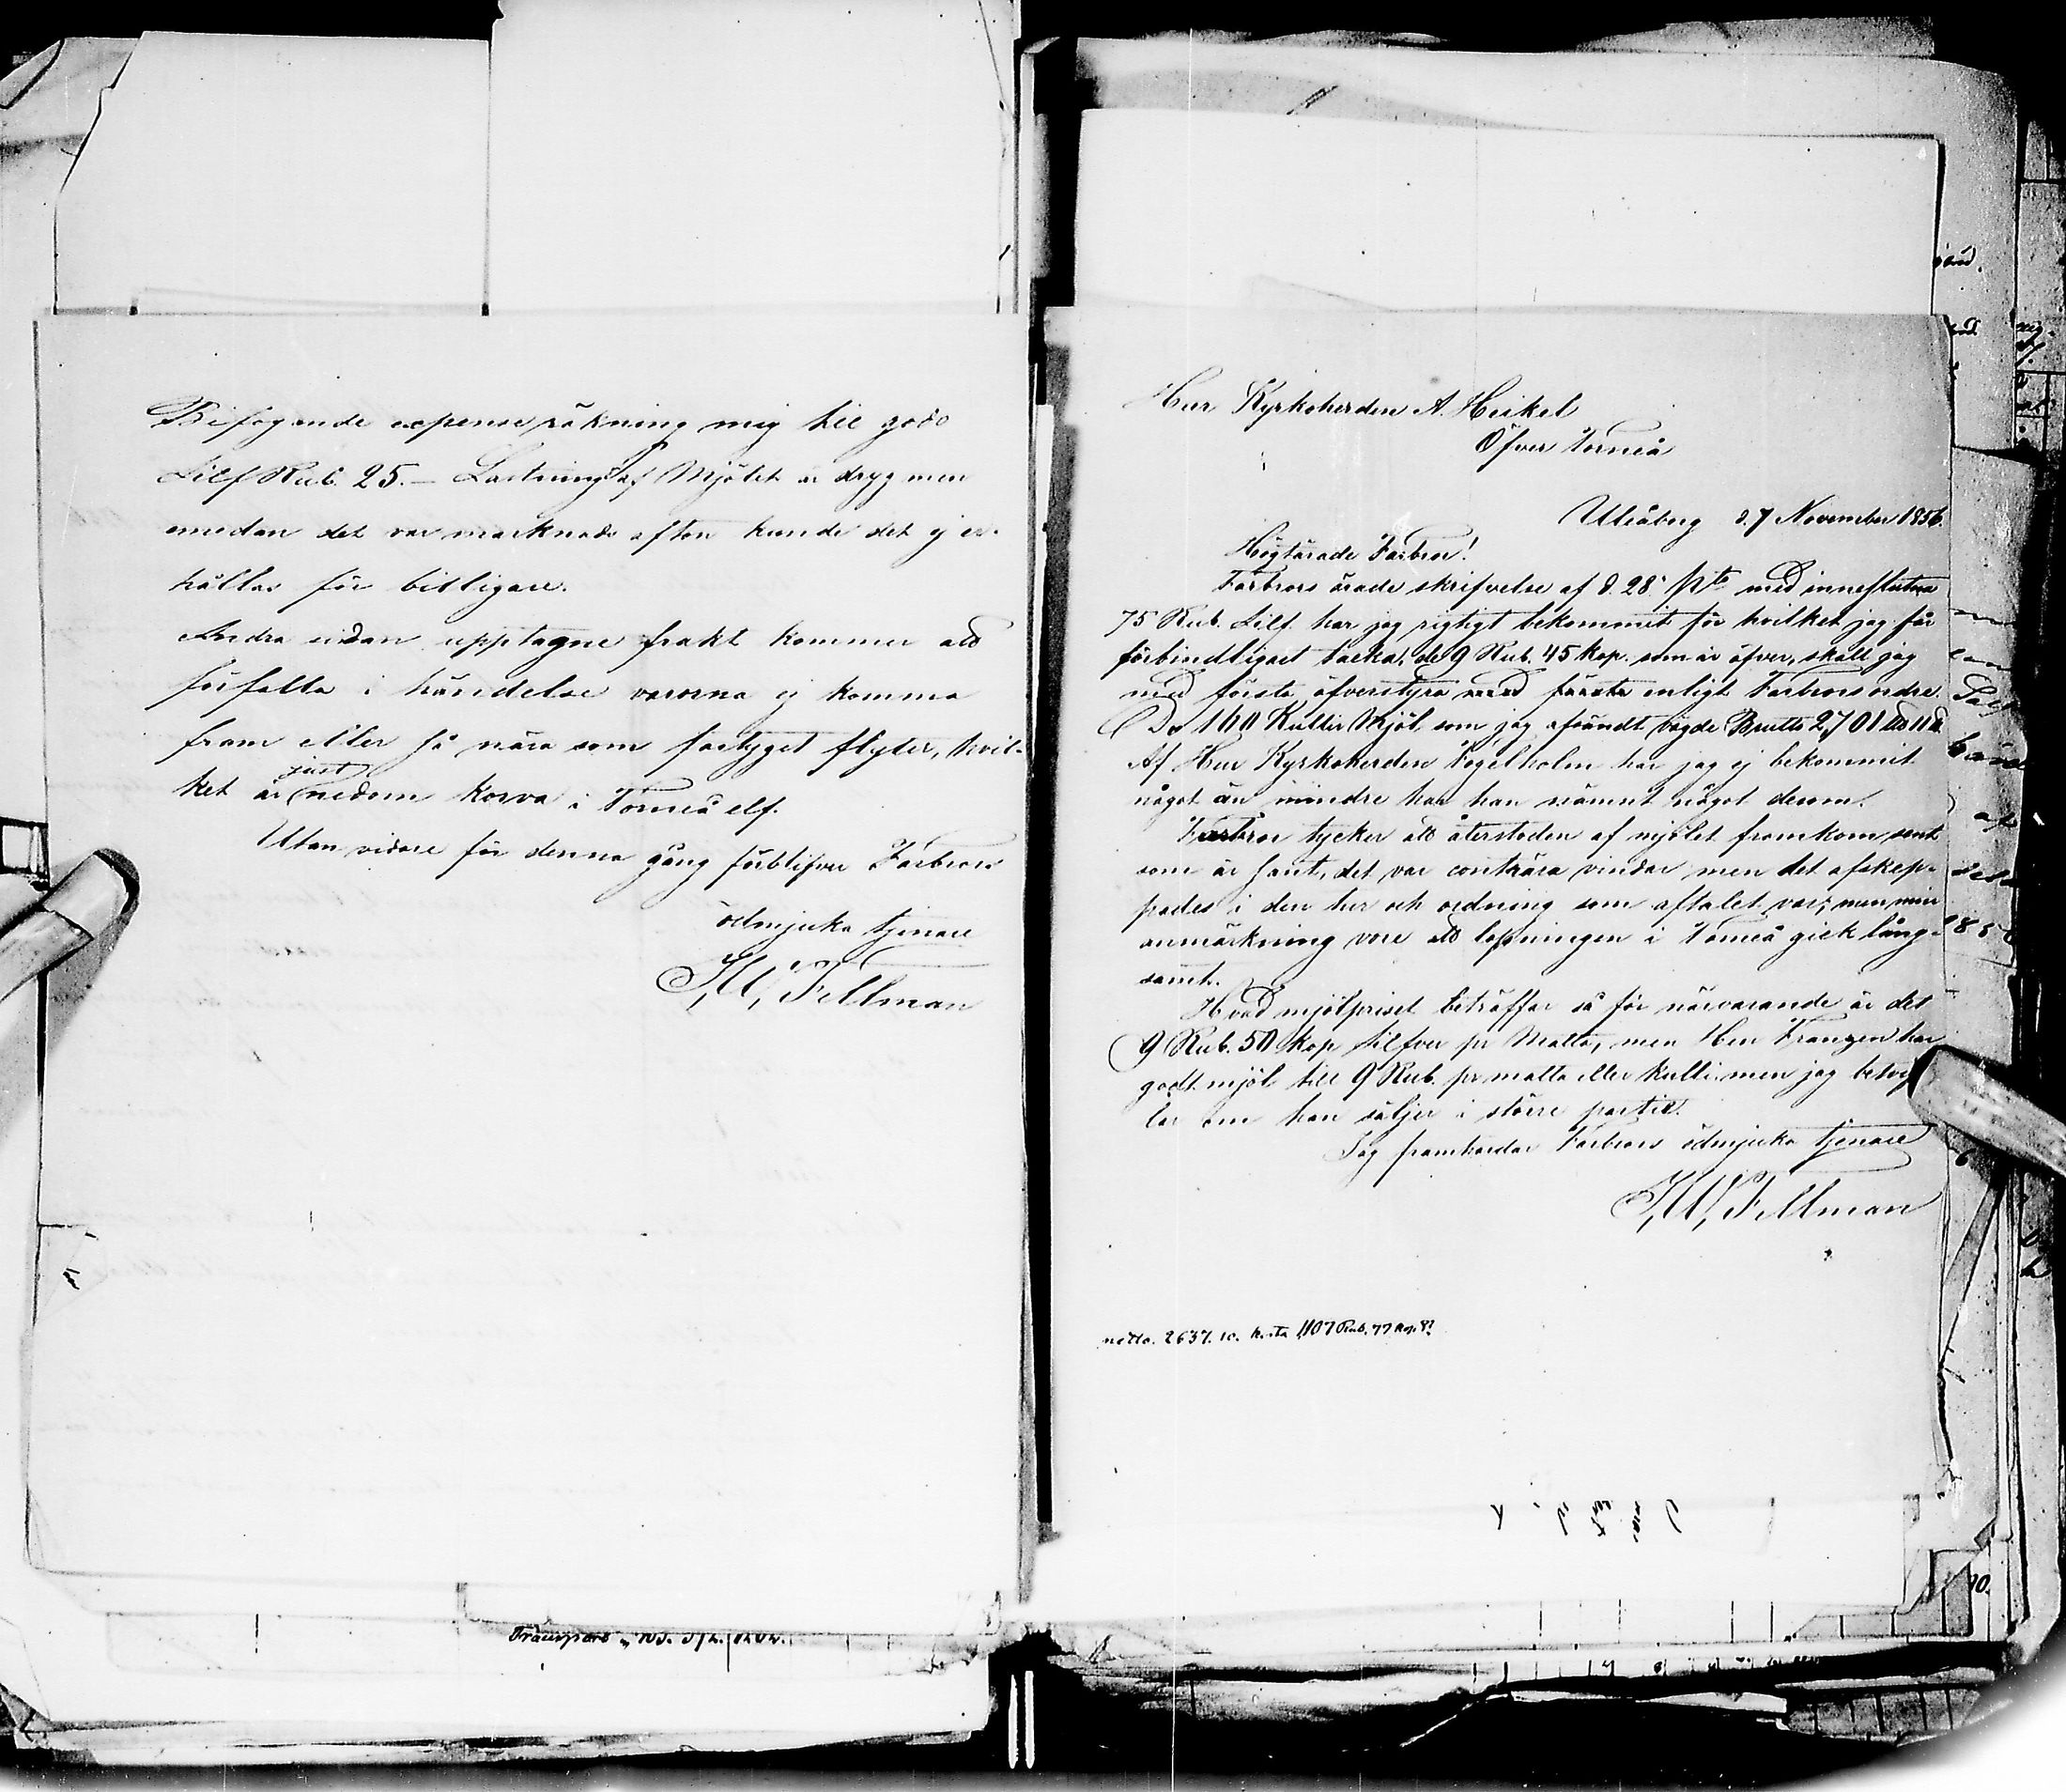 Bifogande expense räkning mig till godo
Silf Rub. 25. – Lastning af Mjölet är dryg men
emedan det var marknads afton kunde det ej er-
hållas för billigare.
Andra sidan upptagne frakt kommer att
förfalla i händelse varorna ej komma
fram eller så nära som fartyget flyter, hvil-
just
ket är nedom Korva i Torneå elf.
Utan vidare för denna gång förblifver Farbrors
ödmjuka tjenare
Fellman
Herr Kyrkoherden A. Heikel
Öfver Torneå
Uleåborg d. 7 November 1856.
Högtärade Farbror!
Farbrors ärade skrifvelse af d. 28 med inneslutna
75 Rub. Silf. har jag rigtigt bekommit för hvilket jag får
förbindligast tacka, de 9 Rub. 45 Kop. som är öfver, skall jag
med första öfverstyra med första enligt Farbrors ordre.
De Kulti Mjöl som jag afsändt vägde Brutto
Af Herr Kyrkoherden Vegelholm har jag ej bekommit
något än mindre har han nämnt något derom.
Farbror tycker att återstoden af mjölet framkom sent
som är sant, det var conträra vindar men det afskep-
pades i den tur och ordning som aftalet var; men min
anmärkning vore att lossningen i Torneå gick lång-
samt.
Hvad mjölpriset beträffar så för närvarande är det
9 Rub. 50 Kop silfver pr Matta, men Herr Franzen har
godt mjöl till 9 Rub. pr matta eller kulli men jag betvif
lar om han säljer i större partie.
Jag framhärdar Farbrors ödmjuka tjenare
Fellman
netto. 2637. 10. 1107 Rub. 77 Kop.